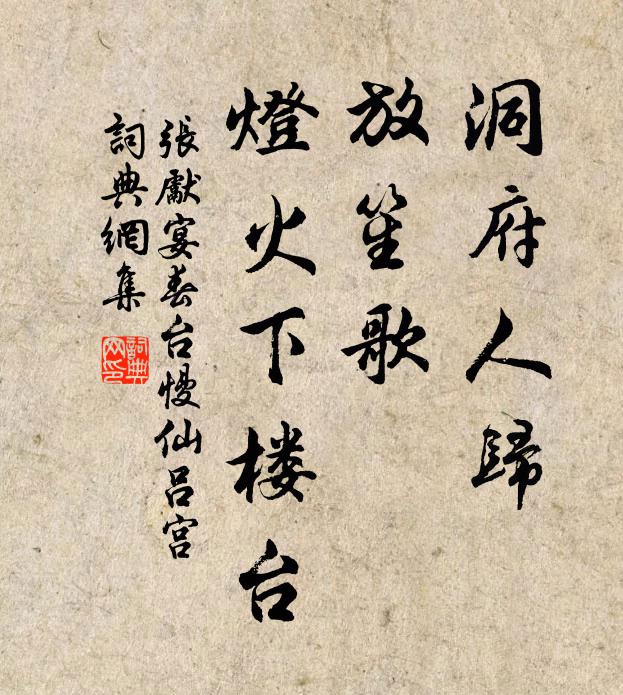 洞府人歸
放笙歌
燈火下楼台
張獻宴春台慢仙呂宮
詞典網集
詞典网印